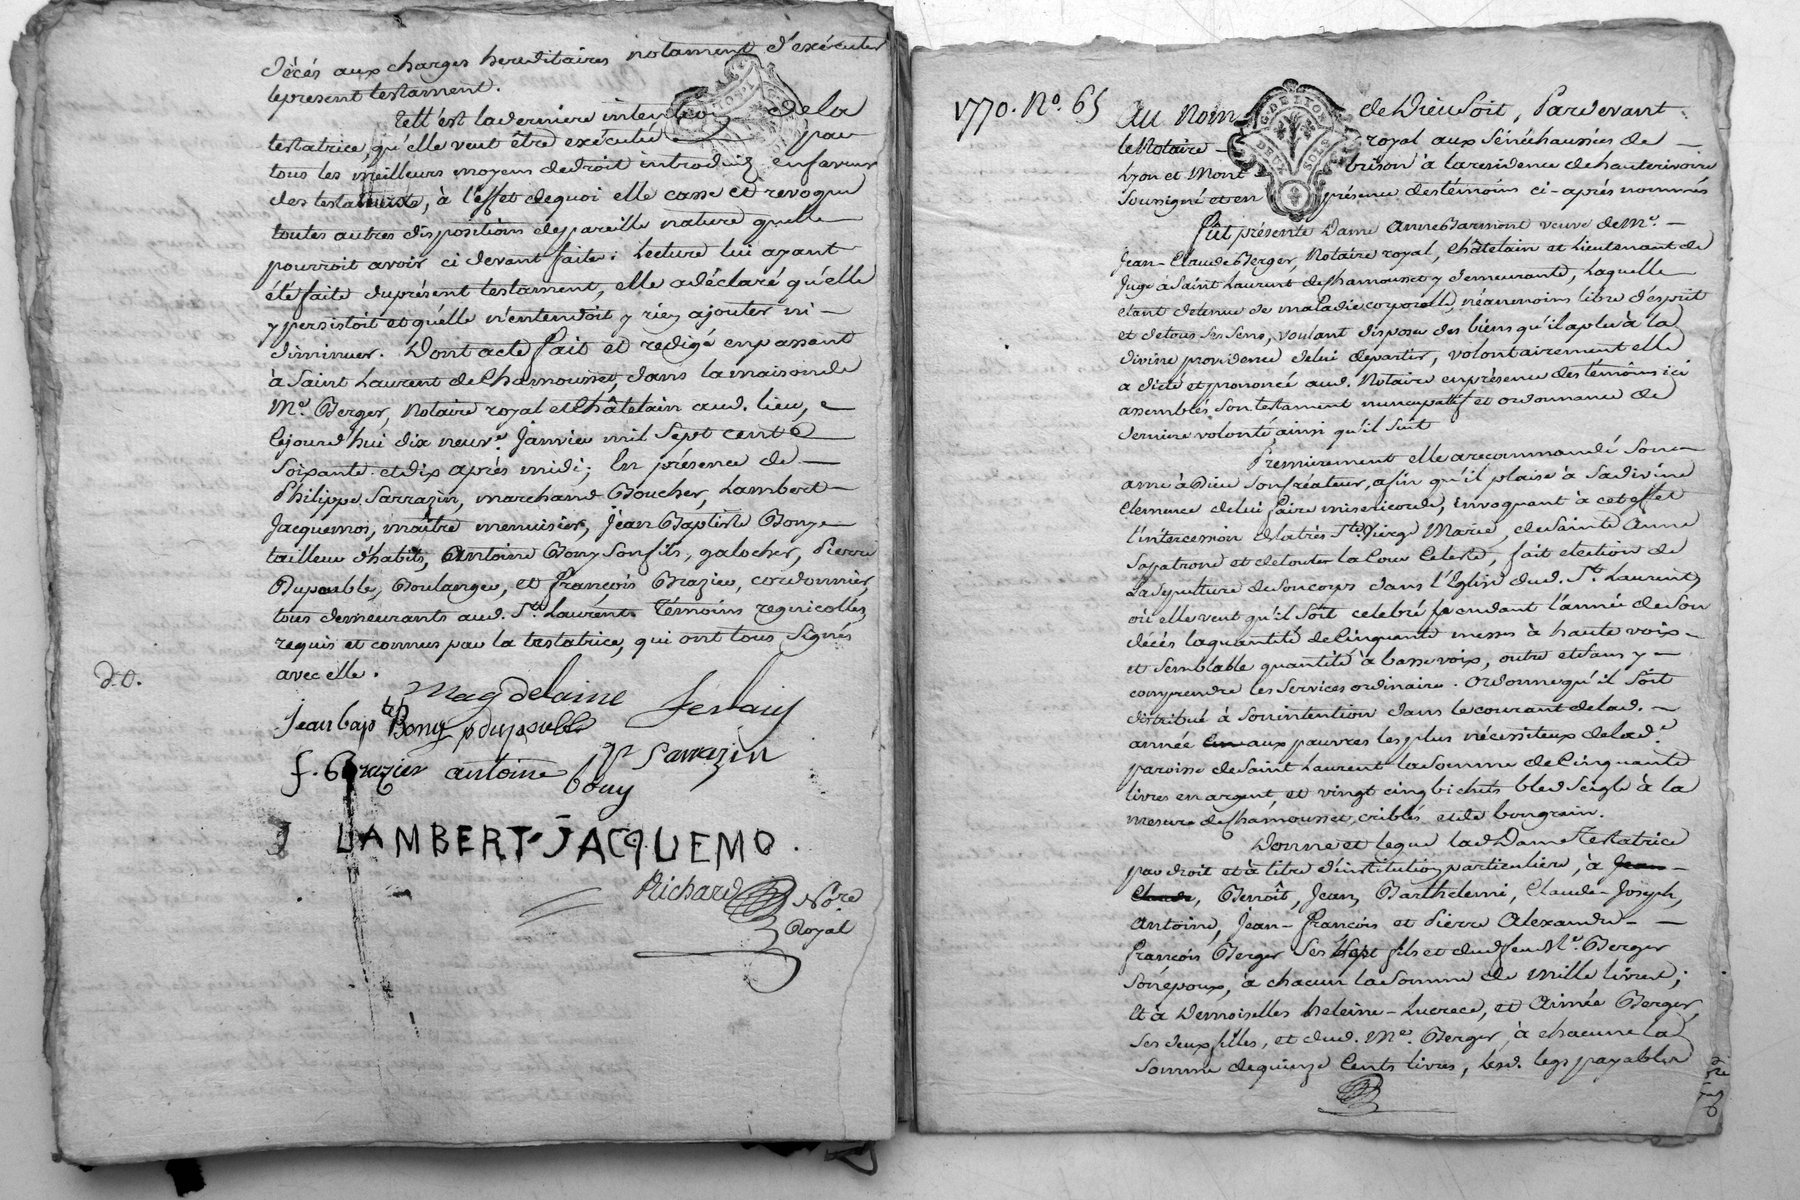 décés aux charges hereditaires notament d'exécuter
le présent testament.
Tell est la derniere intention de la
testatrice, qu'elle veut être exécutée par
tous les meilleurs moyens de droit introduis en faveur
des testaments, à l'effet de quoi elle casse et revoque
toutes autres dispositions de pareille nature qu'elle
pourroit avoir ci devant faite: Lecture lui ayant
été faite du présent testament, elle a déclaré qu'elle
y persistoit et qu'elle n'entendoit y rien ajouter ni
diminuer. Dont acte fait et redigé en passant
à Saint Laurent de Chamousset, dans la maison de
Me. Berger, Notaire royal et Châtelain aud. lieu,
le jourd'hui dix neuve. Janvier mil Sept cents
Soixante et dix après midi; En présence de
Philippe Sarrazin, marchand Boucher, Lambert
Jacquemos, maître menuisier, Jean Baptiste Bony
tailleur d'habits, Antoine Bony Son fils, galocher, Pierre
Dupeuble, Boulanger, et François Brazier, cordonnier,
tous demeurants aud. St. Laurent Témoins regnicolles,
requis et connus par la testatrice, qui ont tous Signés
avec elle.
d.o.
Magdelaine
Jean bapte Bony p dupeuble
f. Brazier antoine bony Sarrazin
LAMBERT-JACQUEMO.
Richard Nore
Royal
1770. No. 65
Au Nom de Dieu Soit, Pardevant
le Notaire royal aux Sénéchaussées de
Lyon et Montbrison à la residence de hauterivoire
Soussigné et en présence des témoins ci-aprés nommés
G. DE LYON
DEUX SOLS
Fut présente Dame Anne Barmont veuve de Me.
Jean-Claude Berger, Notaire royal, Châtelain et Lieutenant de
Juge à Saint Laurent de Chamousset y demeurante, Laquelle
etant detenue de maladie corporelle, néanmoins libre d'esprit
et de tous Ses Sens, voulant disposer des biens qu'il a plu à la
divine providence de lui departir, volontairement elle
a dicté et prononcé aud. Notaire en présence des témoins ici
assemblés Son testament nuncupatif et ordonnance de
derniere volonté, ainsi qu'il Suit
Premierement elle a recommandé Son
ame à Dieu Son créateur, afin qu'il plaise à Sa divine
Clemence de lui faire misericorde, invoquant à cet effet
l'intercession de la trés Ste. Vierge Marie, de Sainte Anne
Sa patrone et de toute la Cour Celeste, fait election de
La Sepulture de Son corps dans l'Eglise dud. St. Laurent,
où elle veut qu'il Soit celebré pendant l'année de Son
décés la quantité de Cinquante messes à haute voix
et Semblable quantité à basse voix, outre et Sans y
comprendre les Services ordinaires. Ordonne qu'il Soit
distribué à Son intention dans le courant de lad.
année aux pauvres les plus nécessiteux de lad.e
paroisse de Saint Laurent la Somme de Cinquante
livres en argent, et vingt cinq bichets bled Seigle à la
mesure de Chamousset, criblés et de bon grain.
Donne et legue lad. Dame Testatrice
par droit et à titre d'institution particuliere, à Jean
Claude, Benoît, Jean, Barthelemi, Claude-Joseph,
Antoine, Jean-François et Pierre Alexandre
François Berger Ses Sept fils et dud. feu Me. Berger
Son époux, à chacun la Somme de mille livres;
Et à Demoiselles heleine-Lucrece, et Aimée Berger,
Ses deux filles, et dud. Me. Berger, à chacune la
Somme de quinze Cents livres, lesd. legs payables